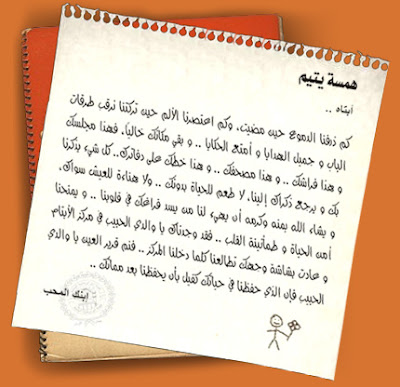 همسة يتيم
أبتاه ..
كم ذرفنا الدموع حين مضيت. وكم اعتصرنا الألم حين تركتنا نرقب طرقات
الباب و جميل الهدايا و أمتع الحكايا .. و بقي مكانك خالياً. فهذا مجلسك
و هذا فراشك .. و هذا مصحفك .. و هذا خطك على دفاترك. كل شيء يذكرنا
بك و يرجع ذكراك إلينا. لا طعم للحياة بدونك .. ولا هناءة للعيش سواك.
و يشاء الله بمنه وكرمه أن يهيء لنا من يسد فراغك في قلوبنا .. و يمنحنا
أمن الحياة و طمأنينة القلب .. فقد وجدناك يا والدي الحبيب في مركز الأيتام
و عادت بشاشة وجهك تطالعنا كلما دخلنا المركز .. فنم قرير العين يا والدي
الحبيب فإن الذي حفظنا في حياتك كفيل بأن يحفظنا بعد مماتك ..
إبنك المحب